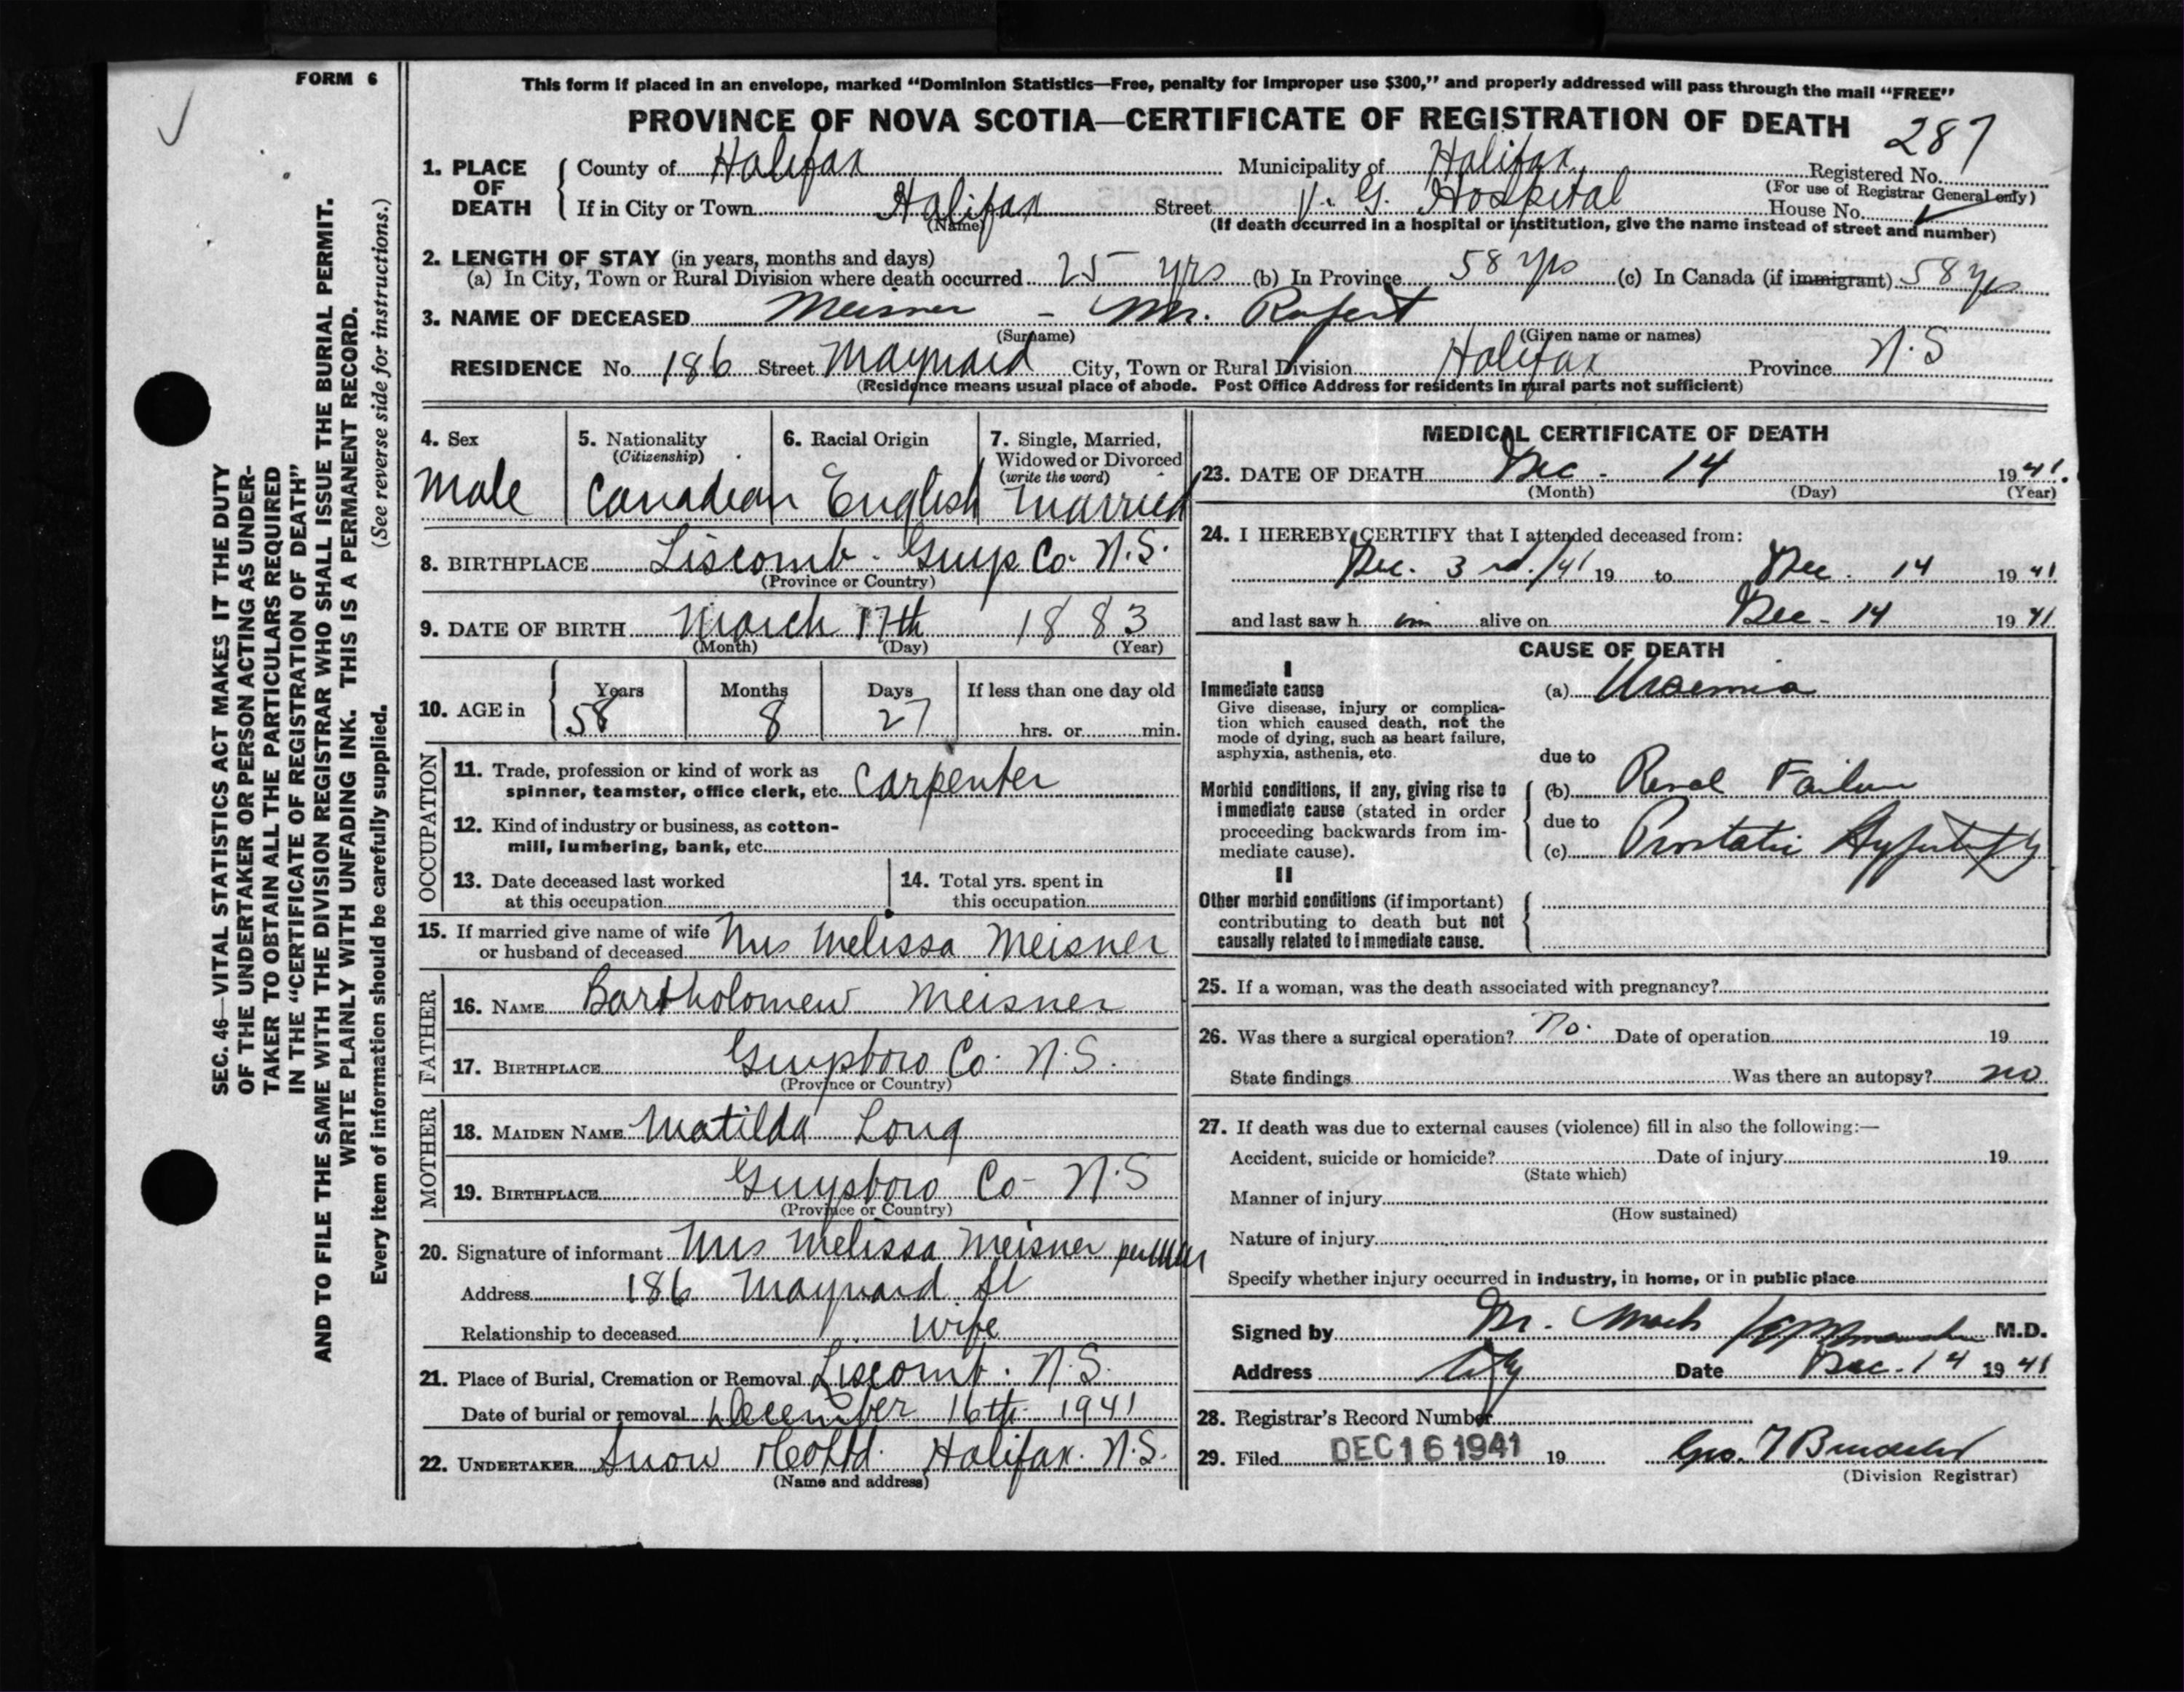 FORM 6
This form if placed in an envelope, marked “Dominion Statistics—Free, penalty for improper use $300,” and properly addressed will pass through the mail “FREE”
PROVINCE OF NOVA SCOTIA—CERTIFICATE OF REGISTRATION OF DEATH
287
1. PLACE OF DEATH
County of Halifax Municipality of Halifax Registered No.
(For use of Registrar General only)
If in City or Town Halifax Street V. G. Hospital House No.
(Name) (If death occurred in a hospital or institution, give the name instead of street and number)
2. LENGTH OF STAY (in years, months and days)
(a) In City, Town or Rural Division where death occurred 25 yrs (b) In Province 58 yrs (c) In Canada (if immigrant) 58 yrs
3. NAME OF DECEASED Meisner - Mr. Rupert
(Surname) (Given name or names)
RESIDENCE No. 186 Street Maynard City, Town or Rural Division Halifax Province N.S
(Residence means usual place of abode. Post Office Address for residents in rural parts not sufficient)
4. Sex
Male
5. Nationality
(Citizenship)
Canadian
6. Racial Origin
English
7. Single, Married,
Widowed or Divorced
(write the word)
Married
8. BIRTHPLACE Liscomb. Guys. Co. N.S.
(Province or Country)
9. DATE OF BIRTH March 17th 1883
(Month) (Day) (Year)
10. AGE in
Years Months Days If less than one day old
58 8 27 hrs. or min.
OCCUPATION
11. Trade, profession or kind of work as
spinner, teamster, office clerk, etc. Carpenter
12. Kind of industry or business, as cotton-
mill, lumbering, bank, etc.
13. Date deceased last worked
at this occupation
14. Total yrs. spent in
this occupation
15. If married give name of wife
or husband of deceased Mrs Melissa Meisner
FATHER
16. NAME Bartholomew Meisner
17. BIRTHPLACE Guysboro Co. N.S.
(Province or Country)
MOTHER
18. MAIDEN NAME Matilda Long
19. BIRTHPLACE Guysboro Co- N.S
(Province or Country)
20. Signature of informant Mrs Melissa Meisner per
Address 186 Maynard St
Relationship to deceased Wife
21. Place of Burial, Cremation or Removal Liscomb. N.S.
Date of burial or removal December 16th 1941
22. UNDERTAKER Snow & Co Ltd. Halifax. N.S.
(Name and address)
MEDICAL CERTIFICATE OF DEATH
23. DATE OF DEATH Dec - 14 1941.
(Month) (Day) (Year)
24. I HEREBY CERTIFY that I attended deceased from:
Dec. 3rd./41 19 to Dec. 14 1941
and last saw him alive on Dec - 14 1941
CAUSE OF DEATH
I
Immediate cause
Give disease, injury or complica-
tion which caused death, not the
mode of dying, such as heart failure,
asphyxia, asthenia, etc.
(a) Uraemia
due to
Morbid conditions, if any, giving rise to
immediate cause (stated in order
proceeding backwards from im-
mediate cause).
(b) Renal Failure
due to
(c) Prostatic Hypertrophy
II
Other morbid conditions (if important)
contributing to death but not
causally related to immediate cause.
25. If a woman, was the death associated with pregnancy?
26. Was there a surgical operation? No. Date of operation 19
State findings Was there an autopsy? no
27. If death was due to external causes (violence) fill in also the following:—
Accident, suicide or homicide? Date of injury 19
(State which)
Manner of injury
(How sustained)
Nature of injury
Specify whether injury occurred in industry, in home, or in public place
Signed by M.D.
Address City Date Dec. 14 1941
28. Registrar's Record Number
29. Filed DEC 16 1941 19 Geo. T
(Division Registrar)
SEC. 46—VITAL STATISTICS ACT MAKES IT THE DUTY
OF THE UNDERTAKER OR PERSON ACTING AS UNDER-
TAKER TO OBTAIN ALL THE PARTICULARS REQUIRED
IN THE “CERTIFICATE OF REGISTRATION OF DEATH”
AND TO FILE THE SAME WITH THE DIVISION REGISTRAR WHO SHALL ISSUE THE BURIAL PERMIT.
WRITE PLAINLY WITH UNFADING INK. THIS IS A PERMANENT RECORD.
Every item of information should be carefully supplied. (See reverse side for instructions.)